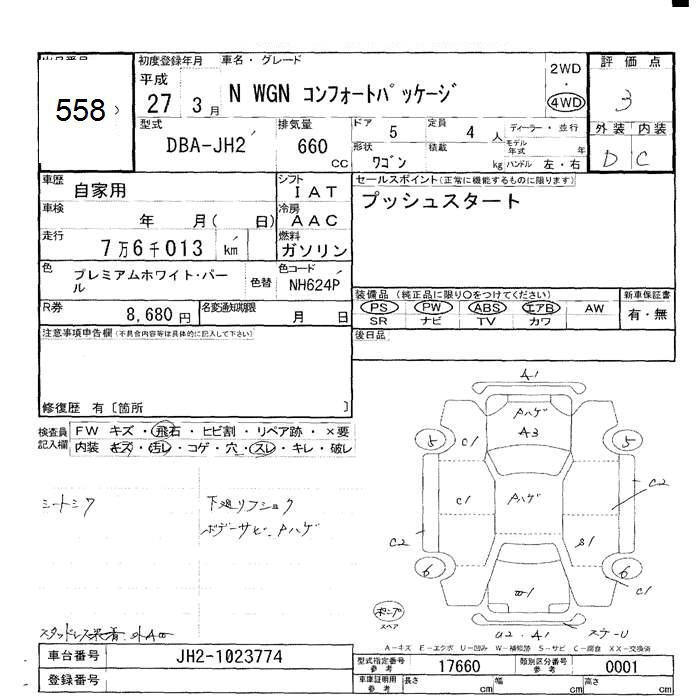 初度登録年月 車名・グレード 評価点
558
平成 27 3月
N WGN コンフォートパッケージ
2WD
・
4WD
3
型式 DBA-JH2
排気量 660 cc
ドア 5 定員 4 人
ディーラー・並行
形状 ワゴン 積載 kg
モデル年式 年
ハンドル 左・右
外装 内装
D C
車歴 自家用
シフト IAT
セールスポイント(正常に機能するものに限ります)
プッシュスタート
車検 年 月( 日)
冷房 AAC
走行 7万6千013 km
燃料 ガソリン
色 プレミアムホワイト・パール
色替
色コード NH624P
R券 8,680円
名変通知期限 月 日
装備品(純正品に限り○をつけてください)
新車保証書
PS PW ABS エアB AW
有・無
SR ナビ TV カワ
注意事項申告欄(不具合内容等は具体的に記入して下さい)
後日品
修復歴 有〔箇所 〕
検査員記入欄
FW キズ・飛石・ヒビ割・リペア跡・×要
内装 キズ・汚レ・コゲ・穴・スレ・キレ・破レ
シートシワ
下廻リフショク
ボデーサビ、Pハゲ
A1
Pハゲ
A3
5 C1 5
C2
C1 Pハゲ
C2 S1
6 W1 6
C1
U2 ・ A1 スナーU
スペア
A-キズ E-エクボ U-凹み W-補修跡 S-サビ C-腐食 XX-交換済
車台番号 JH2-1023774
型式指定番号 参考 17660
類別区分番号 参考 0001
登録番号
車庫証明用 参考 長さ cm 幅 cm 高さ cm